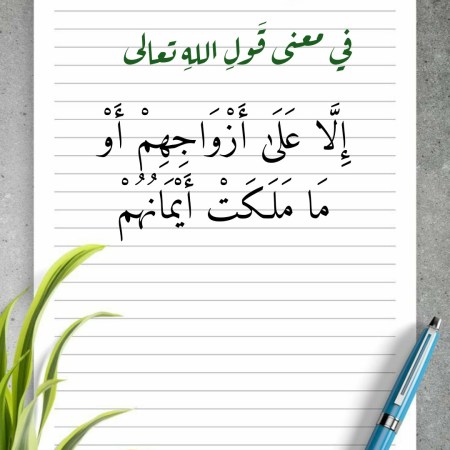 في معنى قَولِ اللهِ تعالى
إِلَّا عَلَىٰ أَزْوَاجِهِمْ أَوْ
مَا مَلَكَتْ أَيْمَانُهُمْ